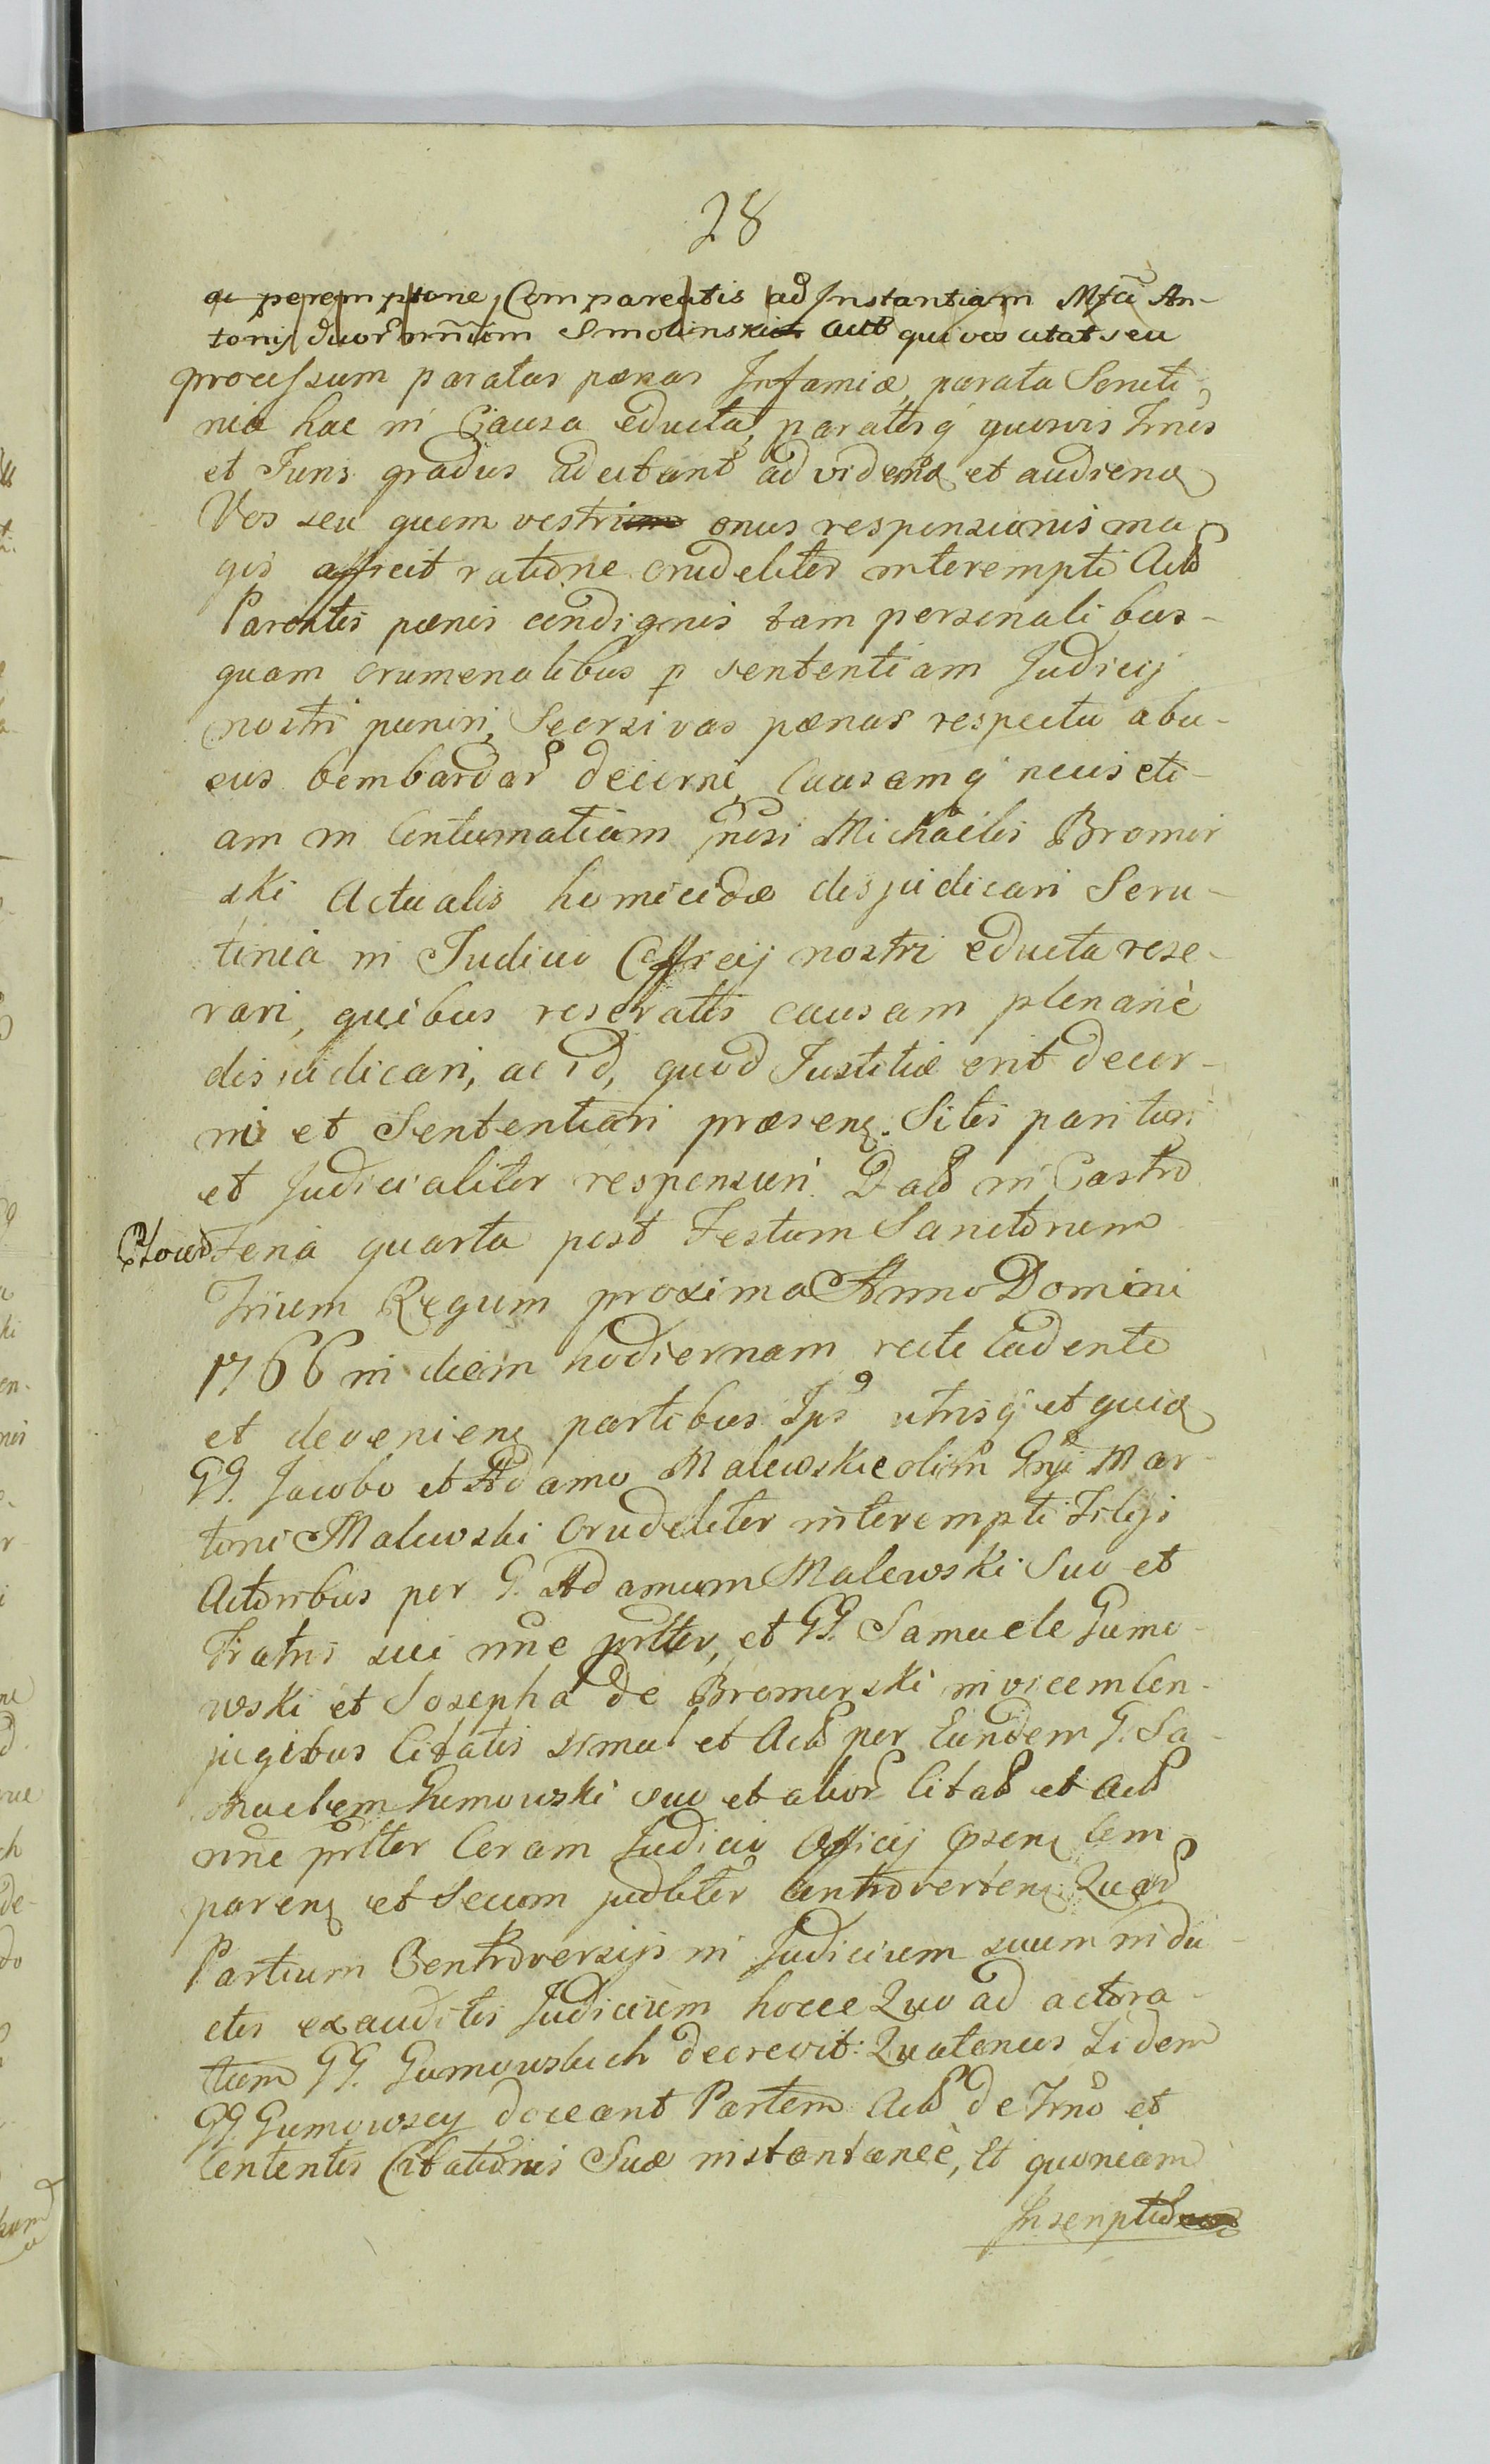 28
ac peremptorie, Compareatis ad Instantiam Mfci An-
tonij duor nnium Smolinskich Actt qui vos citat seu
processum paratas pænas Infamiæ, parata Scruti
nia hac in Causa educta, paratisq quosvis Trnos
et Juris gradus adcitant ad videnđ et audienđ
Vos seu quem vestrum onus responsionis ma
gis afficit ratione crudeliter interempti Act
Parentis pænis condignis tam personalibus
quam crumenalibus p sententiam Judicij
nostri puniri, Seorsivas pænas respectu abu-
sus bombardar decerni, Causamq hujus eti-
am in Contumatiam Gnosi Michaelis Bromir
ski Actualis homicidæ disjudicari Scru-
tinia in Judicio Officij nostri educta rese-
rari, quibus reseratis causam plenarié
disjudicari, ac id, quod Justitiæ erit decer-
ni et Sententiari præsenz. Sitis parituri
et Judicialiter responsuri. Dat in Castro
Plocen Feria quarta post Festum Sanctorum
Trium Regum proxima Anno Domini
1766 in diem hodiernam recte cadenti
et devenienz partibus Ips utrisq et quid
GG. Jacobo et Adamo Malewskie olim Gnsi Mar-
tini Malewski crudeliter interempti Filijs
Actoribus per G. Adamum Malewski Suo et
Fratris sui nne prltter, et GG. Samuele Gumo-
wski et Josepha de Bromirski invicem Con-
jugibus Citatis simul et Act per Eundem G. Sa-
muelem Gumowski suo et alior Citat et Act
nne prltter Coram Judicio Officij Psenz Com
parenz et Secum judltter Controvertenz Quar
Partium Controversijs in Judicium suum indu-
ctis exauditis Judicium hocce Quo ad actora-
tum GG. Gumowskich decrevit: Quatenus Iidem
GG. Gumowscy doceant Partem Act de Trno et
Contentis Citationis Suæ instantaneè, Et quoniam
Inscriptio